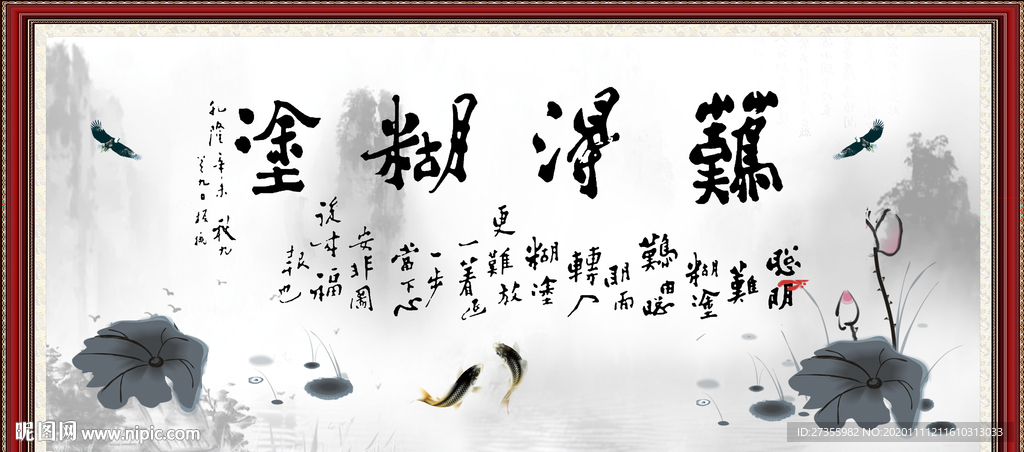 難得糊塗
聰明
難
糊塗
難由聰
明而
轉入
糊塗
更難放
一著退
一步
當下心
安非圖
後来福
報也
乾隆辛未秋九
昵图网 www.nipic.com
ID:27355982 NO:20201111211610313033